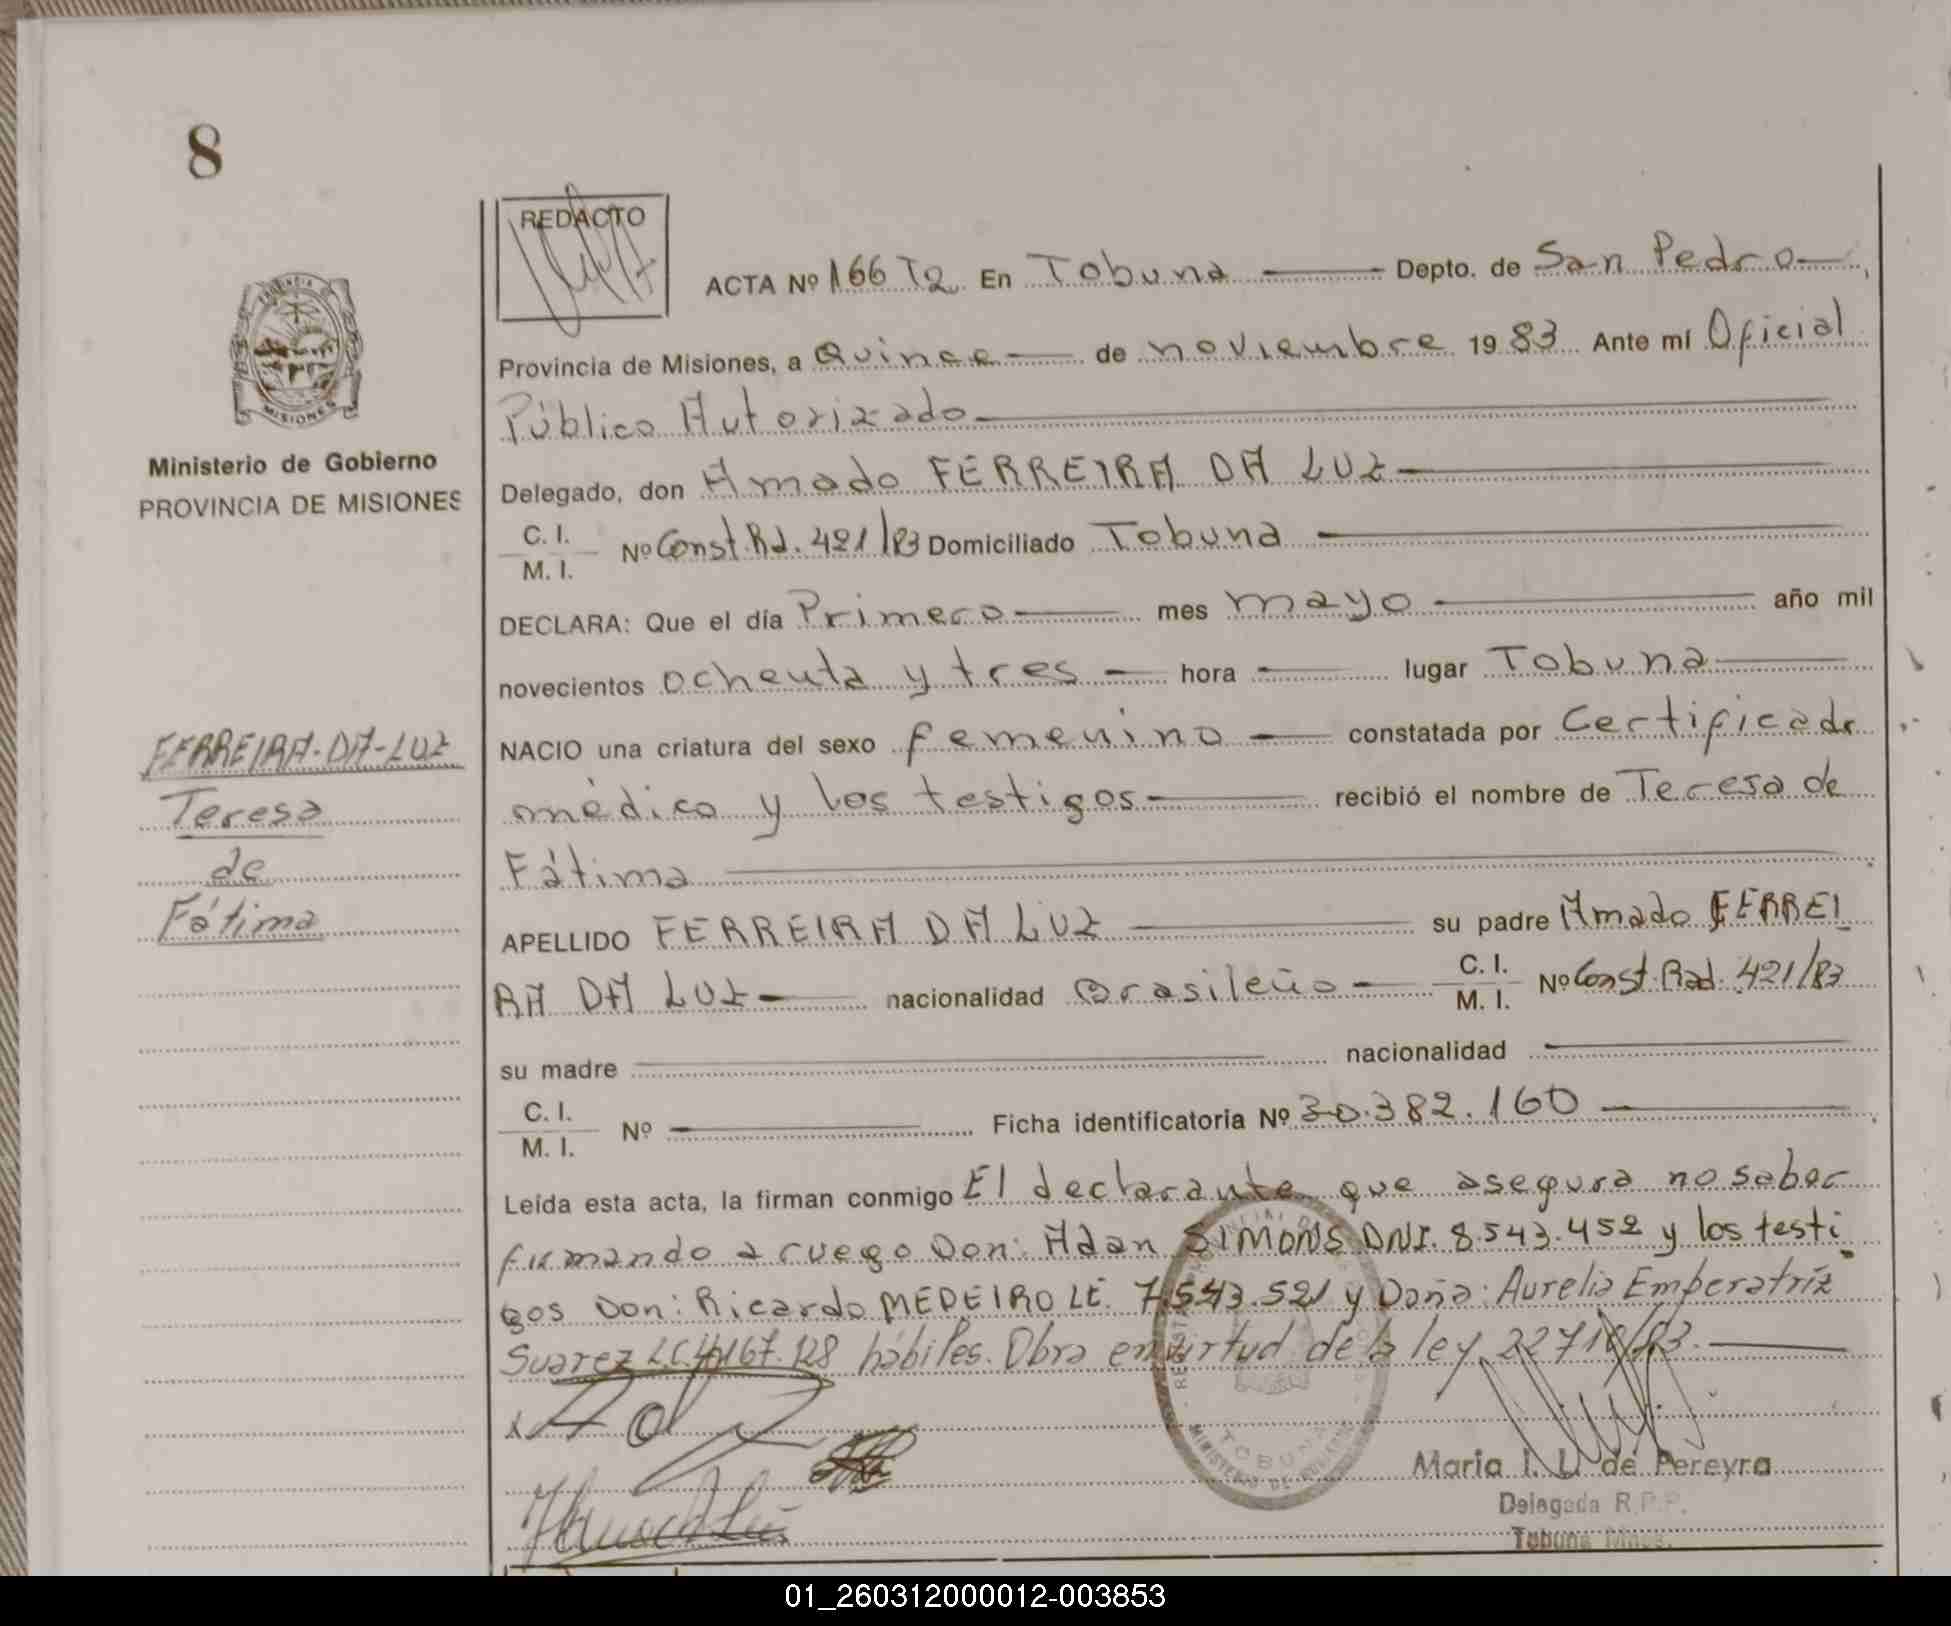 8
REDACTO
ACTA Nº 166 T2 En Tobuna Depto. de San Pedro,
Provincia de Misiones, a Quince de noviembre 1983 Ante mí Oficial
Público Autorizado
Ministerio de Gobierno
PROVINCIA DE MISIONES
Delegado, don Amado FERREIRA DA LUZ
C. I.
M. I. Nº Const. Rd. 421/83 Domiciliado Tobuna
DECLARA: Que el día Primero mes mayo año mil
novecientos ochenta y tres hora lugar Tobuna
NACIO una criatura del sexo femenino constatada por Certificado
médico y los testigos recibió el nombre de Teresa de
Fátima
FERREIRA-DA-LUZ
Teresa
de
Fátima
APELLIDO FERREIRA DA LUZ su padre Amado FERREI
RA DA LUZ nacionalidad Brasileño C. I.
M. I. Nº Const. Rad. 421/83
su madre nacionalidad
C. I.
M. I. Nº Ficha identificatoria Nº 30.382.160
Leída esta acta, la firman conmigo El declarante que asegura no saber
firmando a ruego Don: Adan SIMONS DNI. 8.543.452 y los testi
gos Don: Ricardo MEDEIRO LE. 7.543.521 y Doña: Aurelia Emperatríz
Suarez L.C. 4.167.128 hábiles. Obra en virtud de la ley 22710/83.
PROVINCIA DE
MISIONES
TOBUNA
MINISTERIO DE GOBIERNO
Maria I. L. de Pereyra
Delegada R.P.P.
Tobuna Mnes.
01_260312000012-003853